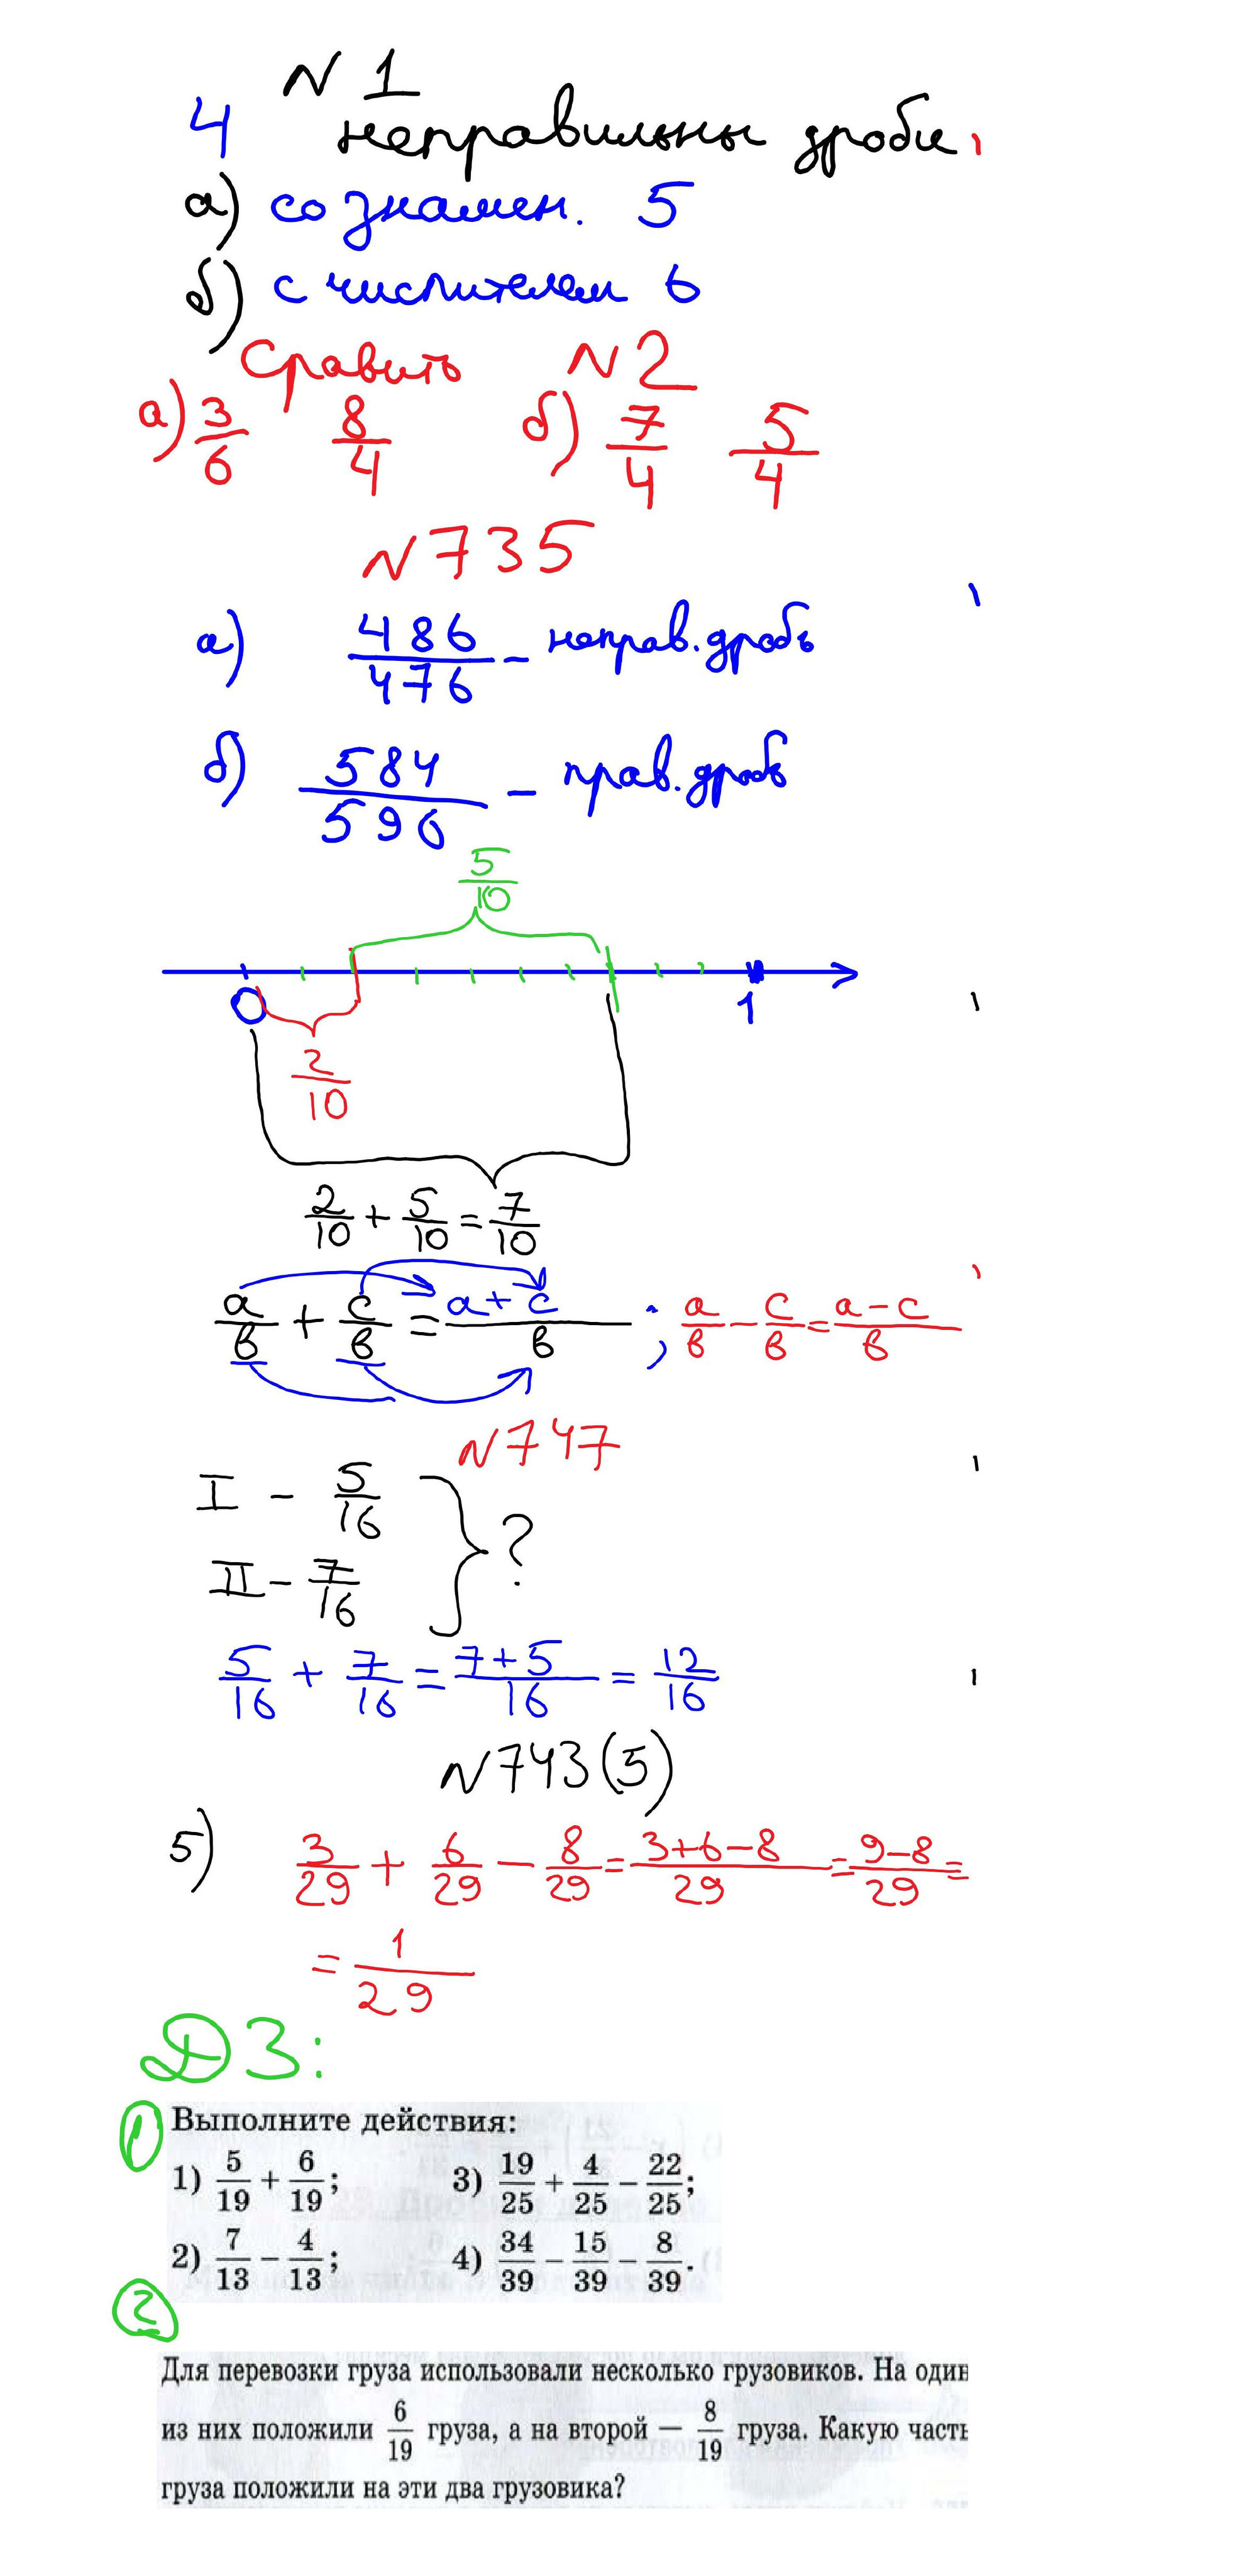 N 1
4 неправильны дроби
а) со знамен. 5
б) с числителем 6
Сравить N 2
а) 3/6 8/4 б) 7/4 5/4
N 735
а) 486/476 - неправ. дробь
б) 584/590 - прав. дробь
5/10
0 1
2/10
2/10 + 5/10 = 7/10
а/в + с/в = а+с/в ; а/в - с/в = а-с/в
N 747
I - 5/16
II - 7/16
?
5/16 + 7/16 = 7+5/16 = 12/16
N 743 (5)
5) 3/29 + 6/29 - 8/29 = 3+6-8/29 = 9-8/29 =
= 1/29
ДЗ:
1 Выполните действия:
1) 5/19 + 6/19; 3) 19/25 + 4/25 − 22/25;
2) 7/13 − 4/13; 4) 34/39 − 15/39 − 8/39.
2
Для перевозки груза использовали несколько грузовиков. На один
из них положили 6/19 груза, а на второй — 8/19 груза. Какую часть
груза положили на эти два грузовика?